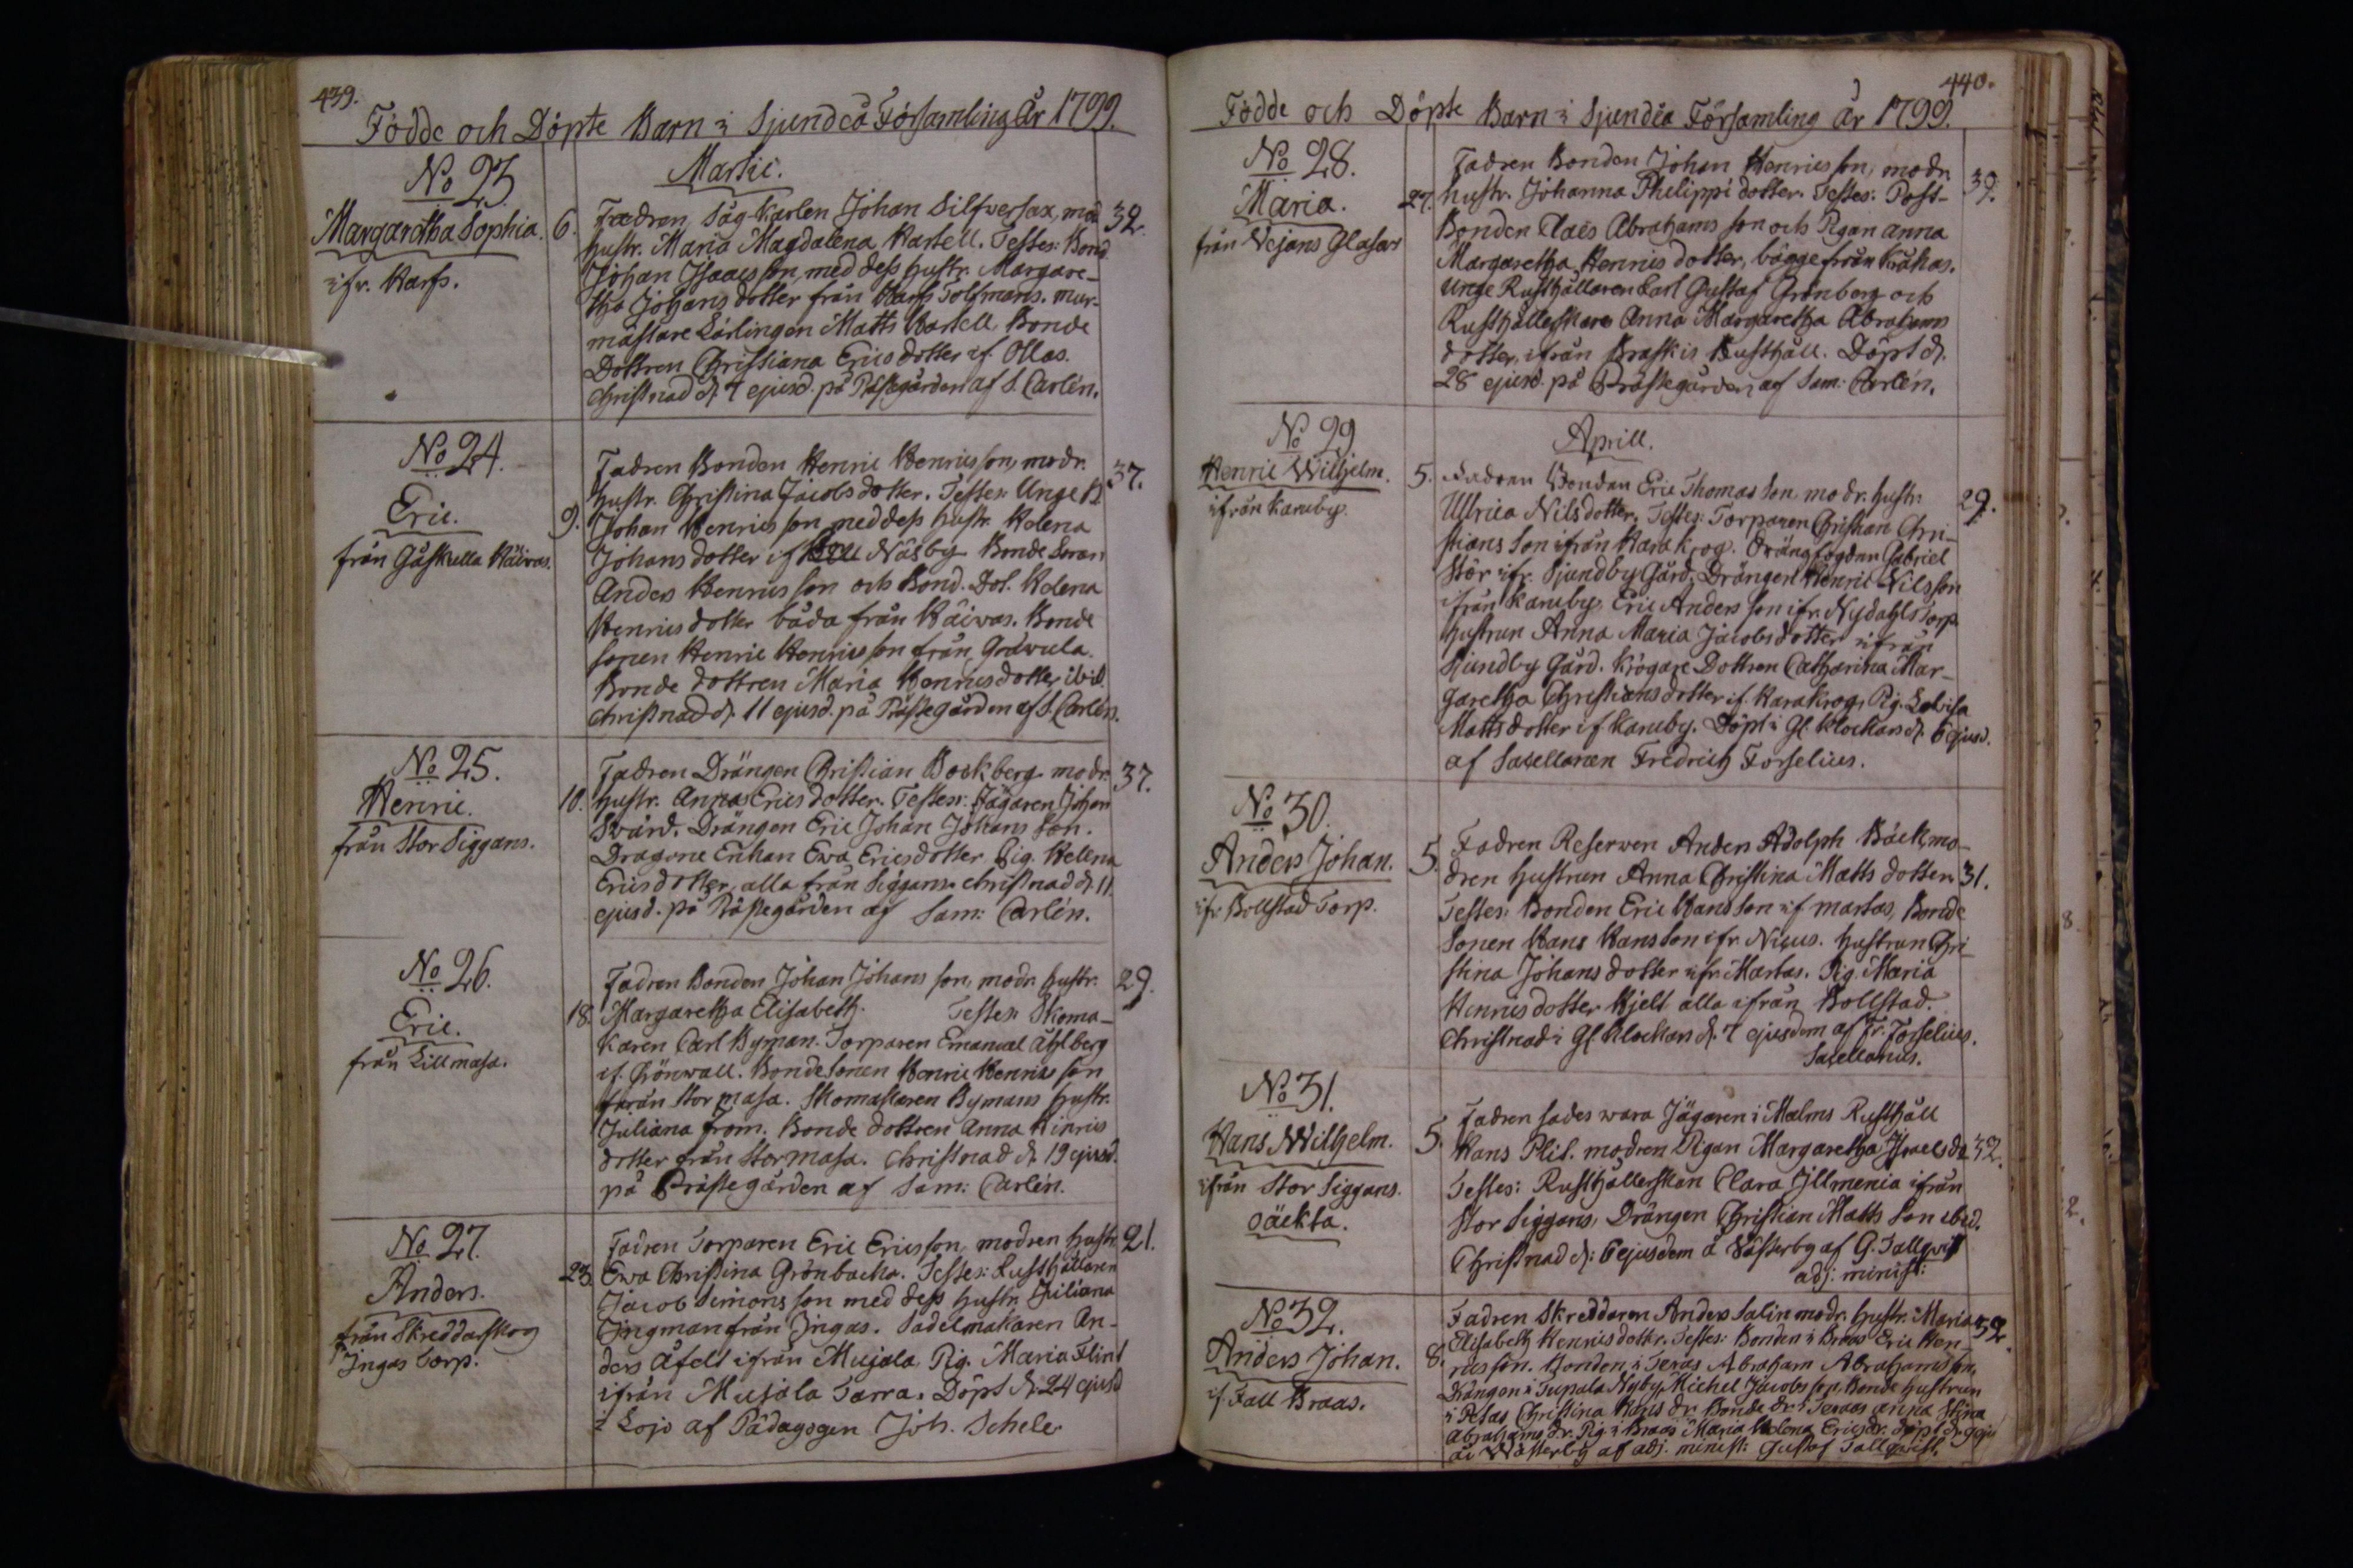 439.
Födde och Döpte Barn i Sjundeå Församling År 1799.
Martii.
No 23.
Margaretha Sophia.
ifr. Harfs.
6.
Fadren Såg-Karlen Johan Silfversax, mod.
hustr. Maria Magdalena Hartell. Testes: Bond.
Johan Isaacs son, med dess hustr. Margare-
tha Johans dotter från Harfs Tolfmans. mur-
mästare Lärlingen Matts Hartell, Bonde
Dottren Christiana Erics dotter if. Ollas.
Christnad d. 7 ejusd. på Prästegården af S. Carlén.
32.
No 24.
Eric.
från Gåskulla Häivas.
9.
Fadren Bonden Henric Henrics son, modr.
hustr. Christina Jacobs dotter. Testes: Unge B.
Johan Henrics son med dess hustr. Helena
Johans dotter if. Näsby Bonde Sonen
Anders Henrics son och Bond. Dot. Helena
Henrics dotter båda från Häiwas. Bonde
sonen Henric Henrics son från Gräwula.
Bonde dottren Maria Henrics dotter ibid.
Christnad d. 11 ejusd. på Prästegården af S. Carlén.
37.
No 25.
Henric.
från Stor Siggans.
10.
Fadren Drängen Christian Bockberg modr.
hustr. Anna Erics dotter. Testes: Jägaren Johan
Svärd. Drängen Eric Johan Johans Son.
Dragone Enkan Ewa Ericsdotter Pig. Helena
Erics dotter, alla från Siggans. Christnad d. 11
ejusd. på Prästegården af Sam: Carlén.
37.
No 26.
Eric.
från Lillmasa.
18.
Fadren Bonden Johan Johans son, modr. hustr.
Margaretha Elisabeth. Testes: Skoma-
karen Carl Byman. Torparen Emanuel Åhlberg
if. Grönwall. BondeSonen Henric Henrics son
från Stor masa. Skomakaren Bymans hustr.
Juliana From. Bonde dottren Anna Henrics
dotter från Stormasa. Christnad d. 19 ejusd.
på Prästegården af Sam: Carlén.
29.
No 27.
Anders.
från Skreddarskog
Ingas Torp.
23.
Fadren Torparen Eric Erics son, modren hustr.
Ewa Christina Grönbacka. Testes: Rusthållaren
Jacob Simons son med dess hustr. Juliana
Ingman från Ingas. Sadelmakaren An-
ders Åfelt ifrån Mujala, Pig. Maria Flint
ifrån Mujala Tarra. Döpt d. 24 ejusd
i Lojo af Pädagogen Joh. Schele.
21.
440.
Födde och Döpte Barn i Sjundeå Församling År 1799.
No 28.
Maria.
från Vejans Glasars
27.
Fadren Bonden Johan Henrics son, modr.
hustr. Johanna Philippi dotter. Testes: Post-
Bonden Claës Abrahams son och Pigan Anna
Margaretha Henrics dotter, bägge från Kråkas.
Unge Rusthållaren Carl Gustaf Grönberg och
Rusthållerskan Anna Margaretha Abrahams
dotter, ifrån Braskis Rusthåll. Döpt d.
28 ejusd. på Prästegården af Sam: Carlén.
39.
Aprill.
No 29
Henric Wilhelm.
ifrån Karuby.
5.
Fadren Bonden Eric Thomas Son modr. hustr:
Ullrica Nils dotter. Testes: Torparen Christian Chri-
stians Son ifrån Harakrog. Drängfogden Gabriel
Stör ifr. Sjundby Gård, Drängen Henric Nils son
ifrån Karuby, Eric Anders son ifr. Nydahls Torp
Hustrun Anna Maria Jacobs dotter ifrån
Sjundby Gård. Krögare Dottren Catharina Mar-
garetha Christians dotter if. Harakrog, Pig. Lovisa
Matts dotter if Karuby. Döpt i Gl. Klockars d. 6 ejusd.
af Sacellanen Fredrich Forselius.
29.
No 30.
Anders Johan.
ifr. Bollstad Torp.
5.
Fadren Reserven Anders Adolph Bäck, mo-
dren hustrun Anna Christina Matts dotter
Testes: Bonden Eric Hans Son if. Martas, Bonde
Sonen Hans Hans Son ifr. Nicus. hustrun Chri-
stina Johans dotter ifr. Martas. Pig. Maria
Henrics dotter Hjelt alla ifrån Bollstad.
Christnad i Gl. Klockars d. 7 ejusdem af Fr. Forselius.
Sacellanus.
31.
No 31.
Hans Wilhelm.
ifrån Stor Siggans.
oäckta.
5.
Fadren sades wara Jägaren i Malms Rusthåll
Hans Plit. modren Pigan Margaretha Israels do
Testes: Rusthållerskan Clara Illmenia ifrån
Stor Siggans, Drängen Christian Matts Son ibid.
Christnad d: 6 ejusdem å Västerby af G. Tallqvist
adj: minist:
32.
No 32.
Anders Johan.
if. Fall Braas.
8.
Fadren Skreddaren Anders Salin modr. hustr. Maria
Elisabeth Henrics dotter. Testes: Bonden i Braas Eric Hen-
rics son. Bonden i Teras Abraham Abrahams son,
Drängen i Tupala Nyby Michel Jacobs son, Bonde hustrun
i Pelas Christina Hans dr. Bonde dr. i Teraas Anna Stina
Abrahams dr. Pig. i Braas Maria Helena Erics dr. Döpt d. 9 eju
å Wästerby af adj. minist: Gustaf Tallqvist.
32.